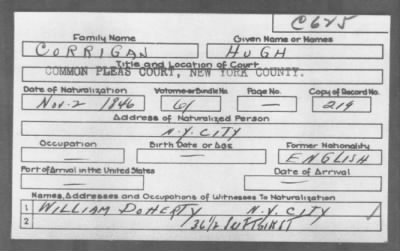 C625
Family Name Given Name or Names
CORRIGAN HUGH
Title and Location of Court
COMMON PLEAS COURT, NEW YORK COUNTY.
Date of Naturalization Volume or Bundle No. Page No. Copy of Record No.
Nov. 2 1846 61 — 219
Address of Naturalized Person
N.Y. CITY
Occupation Birth Date or Age Former Nationality
— — ENGLISH
Port of Arrival in the United States Date of Arrival
— —
Names, Addresses and Occupations of Witnesses To Naturalization
1 WILLIAM DOHERTY N.Y. CITY
2 36½